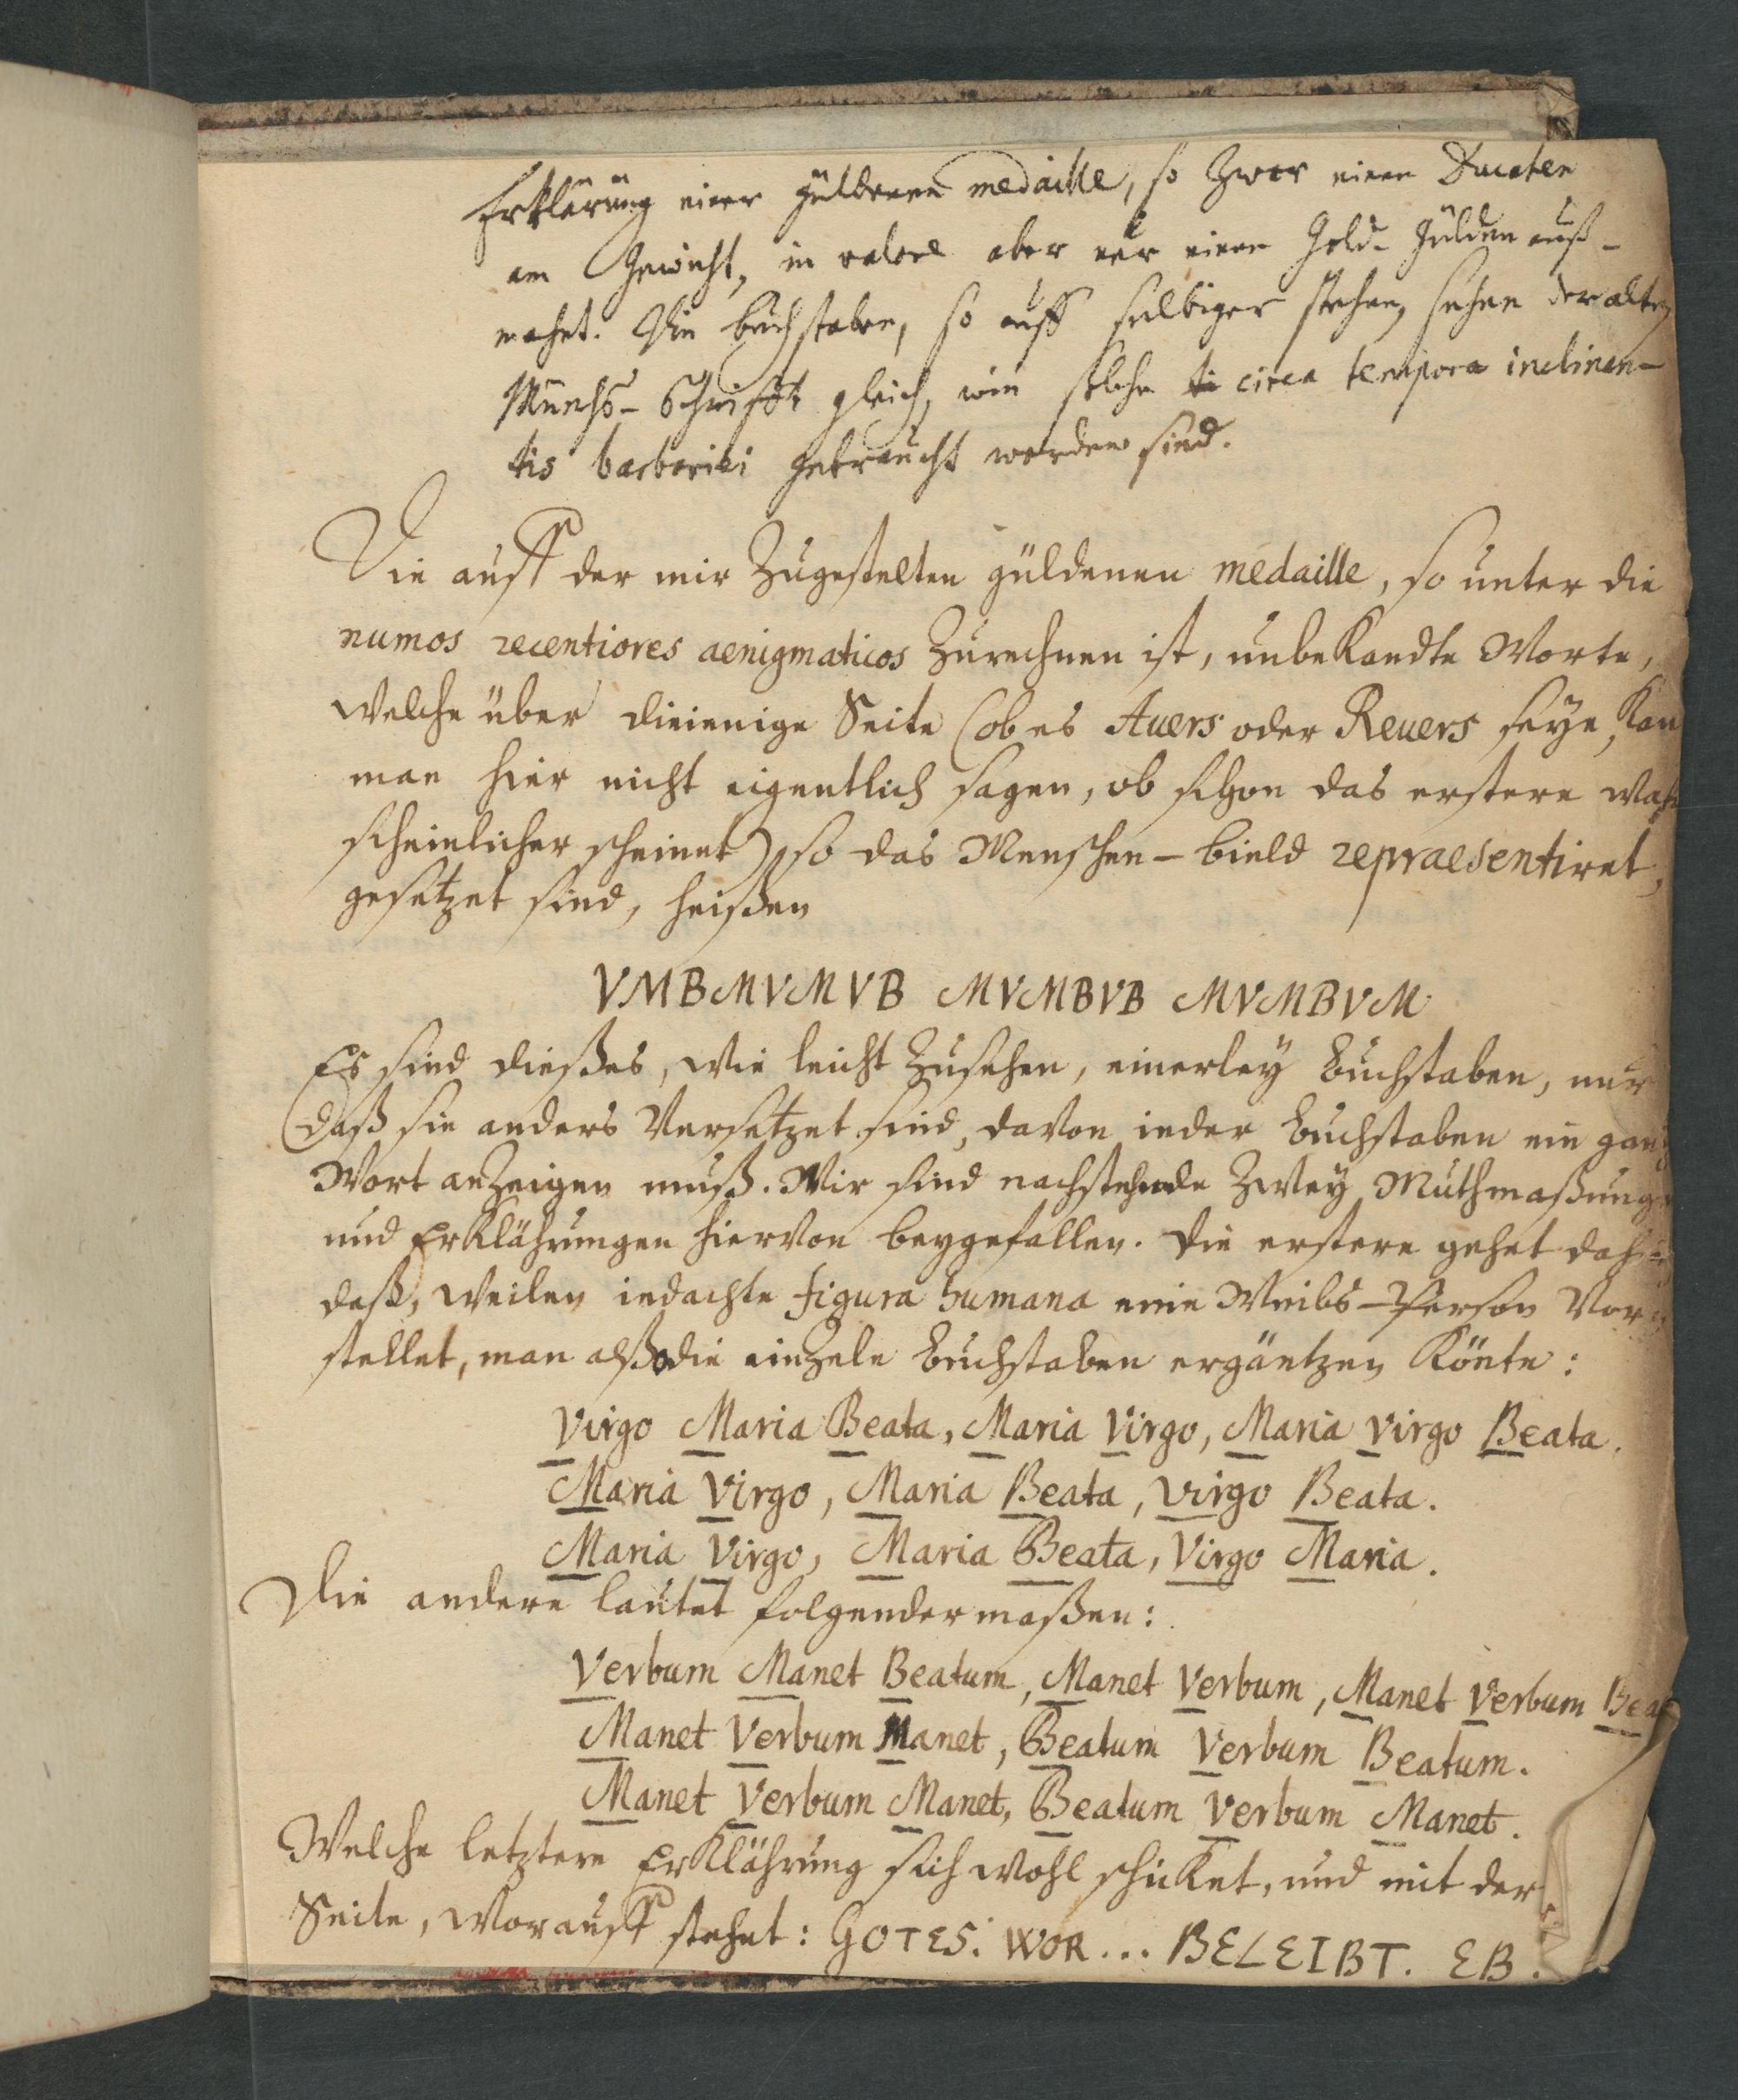 Erklärung einer güldenen medaille, so zwar einen Ducaten
am Gewicht, in valore aber nur einen Gold-Gülden auß-
machet. Die buchstaben, so auff selbiger stehen, sehen der alten
Münchs-Schrifft gleich, wie solche circa tempora inclinan-
tis barbariei gebraucht worden sind.
Die auff der mir zugestelten güldenen medaille, so unter die
numos recentiores aenigmaticos zurechnen ist, unbekandte Worte,
welche über dieienige Seite (ob es Avers oder Revers seye, kan
man hier nicht eigentlich sagen, ob schon das erstere wahr
scheinlicher scheinet) so das Menschen-bield repraesentiret,
gesetzet sind, heißen
VMBMVMVB MVMBVB MVMBVM
Es sind dießes, wie leicht zusehen, einerley buchstaben, nur
daß sie anders versetzet sind, davon ieder buchstaben ein gantz
Wort anzeigen muß. Mir sind nachstehende zwey Muthmaßungen
und Erklährungen hiervon beygefallen. Die erstere gehet dahin,
daß, weilen iedachte figura humana eine Weibs-Person vor
stellet, man alßo die einzele buchstaben ergäntzen könte:
Virgo Maria Beata, Maria Virgo, Maria Virgo Beata.
Maria Virgo, Maria Beata, Virgo Beata.
Maria Virgo, Maria Beata, Virgo Maria.
Die andere lautet folgender maßen:
Verbum Manet Beatum, Manet Verbum, Manet Verbum Beat
Manet Verbum Manet, Beatum Verbum Beatum.
Manet Verbum Manet, Beatum Verbum Manet.
Welche letztere Erklährung sich wohl schicket, und mit der
Seite, worauff stehet: GOTES. WOR... BELEIBT. EB.